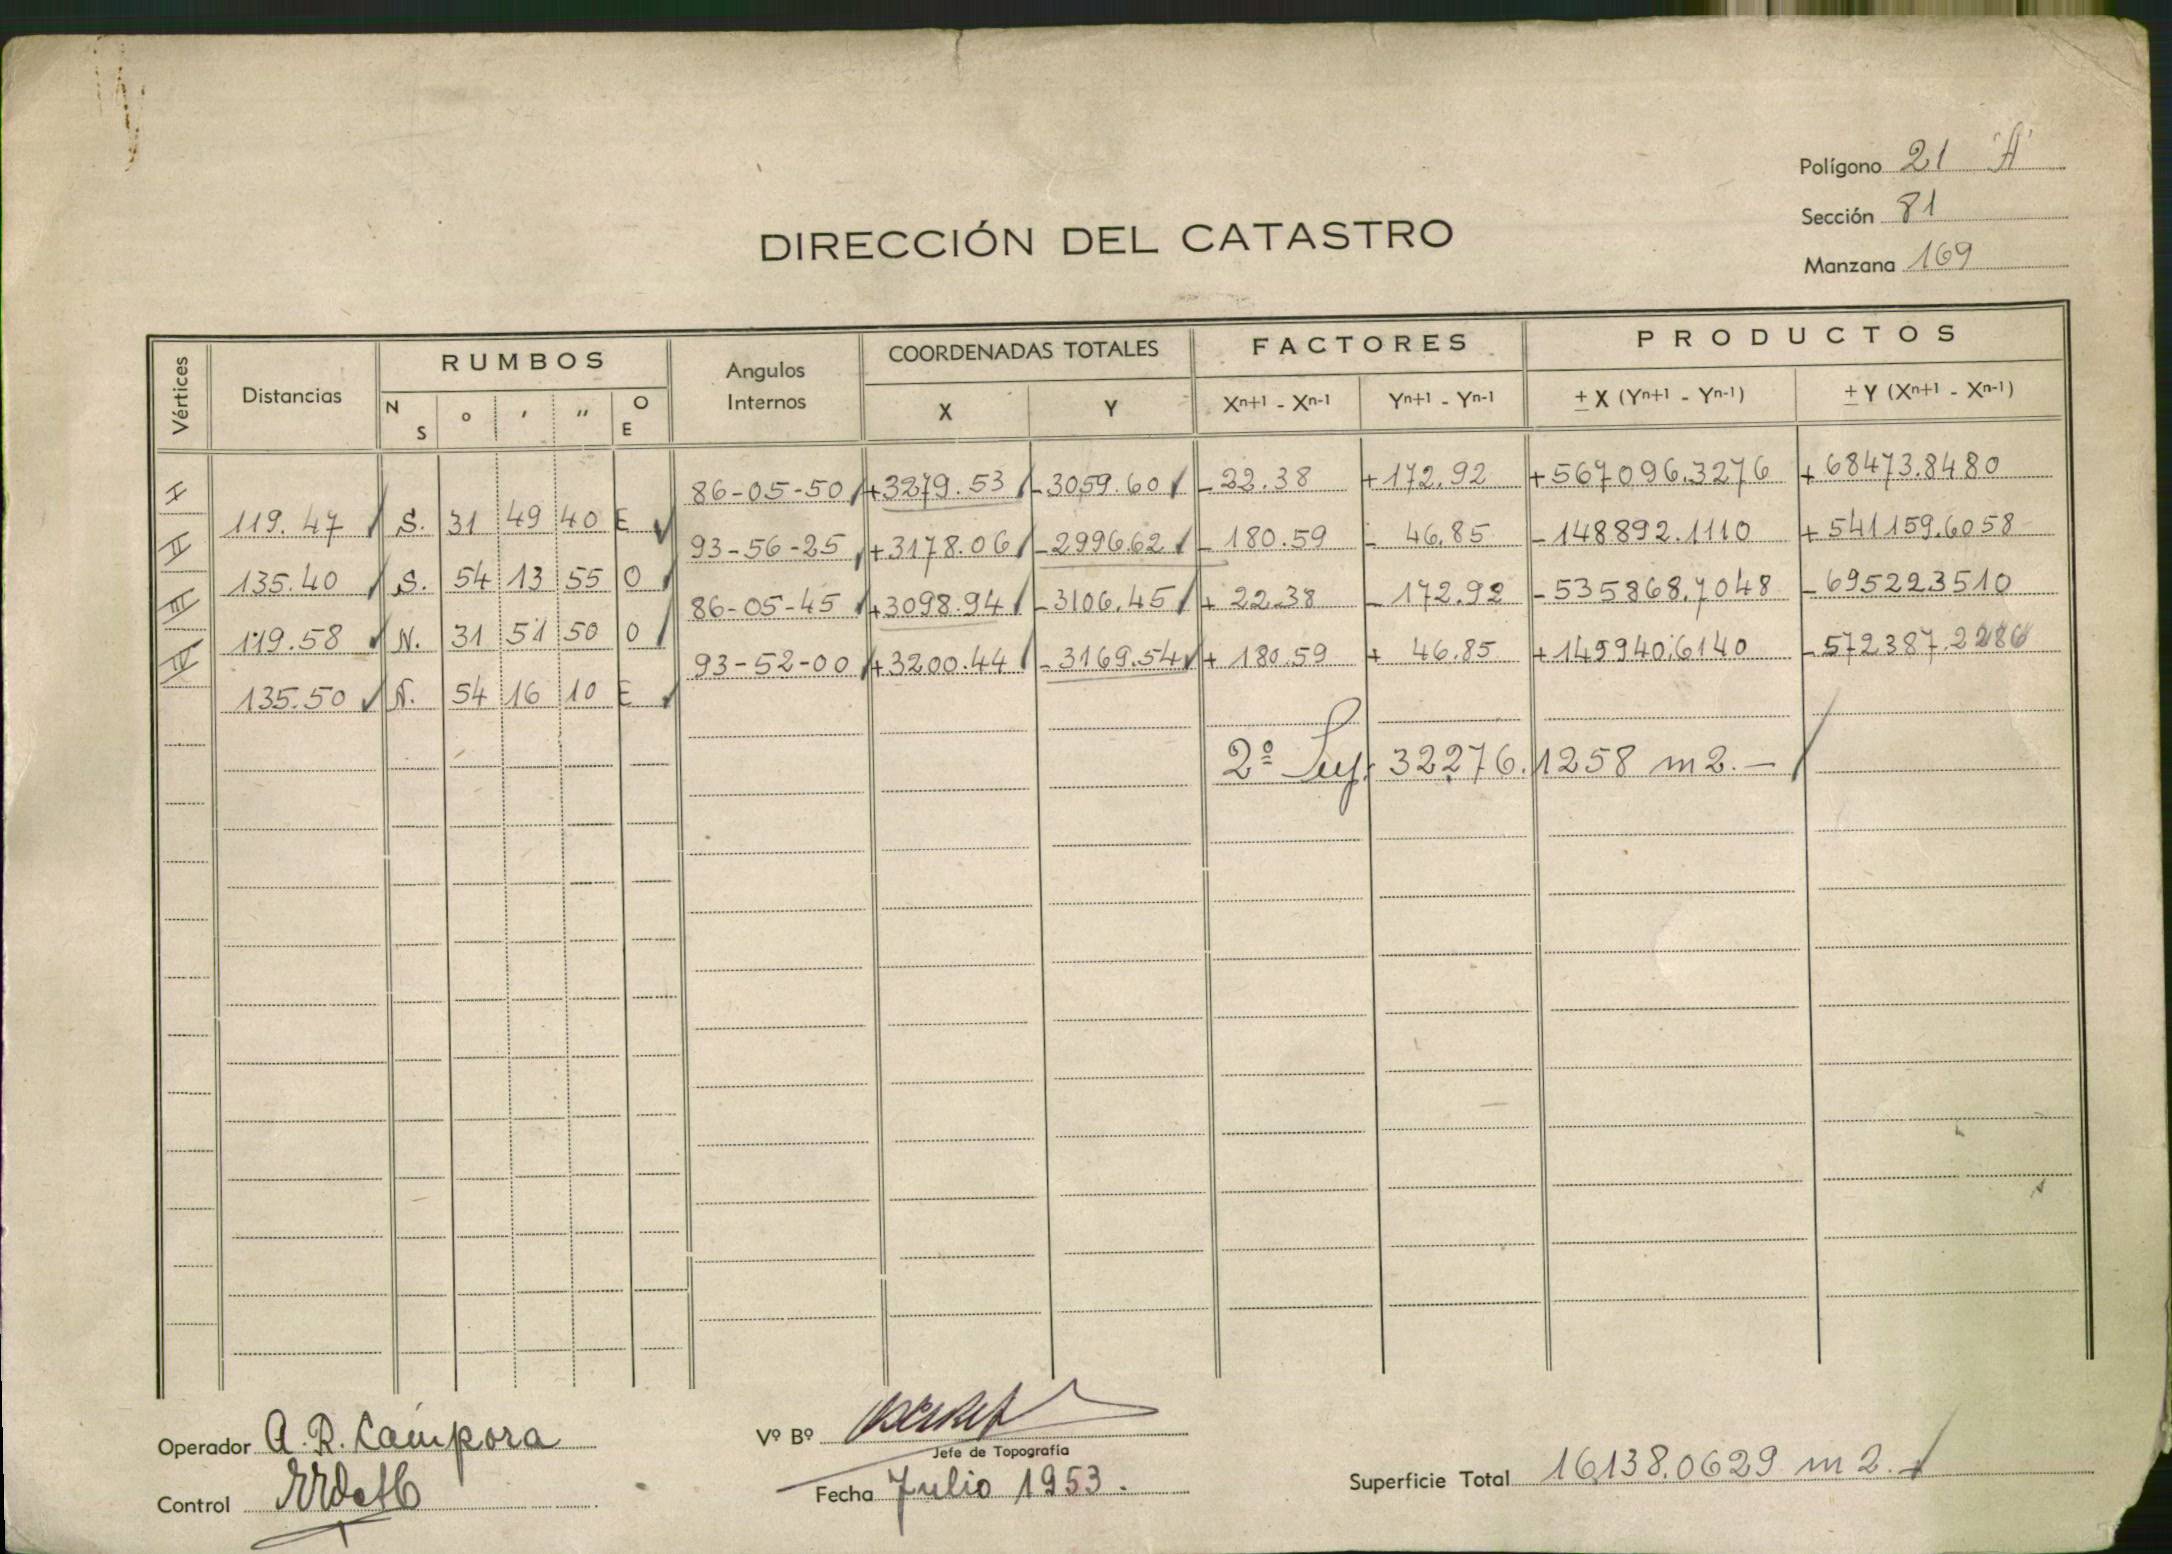 Polígono 21 "A"
Sección 81
Manzana 169
DIRECCIÓN DEL CATASTRO
Vértices Distancias RUMBOS Angulos Internos COORDENADAS TOTALES FACTORES PRODUCTOS
N S ° ′ ″ O E X Y Xn+1 - Xn-1 Yn+1 - Yn-1 ± X (Yn+1 - Yn-1) ± Y (Xn+1 - Xn-1)
I 86-05-50 +3279.53 -3059.60 -22.38 +172.92 +567096.3276 +68473.8480
119.47 S. 31 49 40 E
II 93-56-25 +3178.06 -2996.62 -180.59 -46.85 -148892.1110 +541159.6058
135.40 S. 54 13 55 O
III 86-05-45 +3098.94 -3106.45 +22.38 -172.92 -535868.7048 -69522.3510
119.58 N. 31 51 50 O
IV 93-52-00 +3200.44 -3169.54 +180.59 +46.85 +149940.6140 -572387.2286
135.50 N. 54 16 10 E
2º Sup. 32276.1258 m2.-
Operador A. R. Cámpora
Control
Vº Bº
Jefe de Topografía
Fecha Julio 1953.
Superficie Total 16138.0629 m2.-